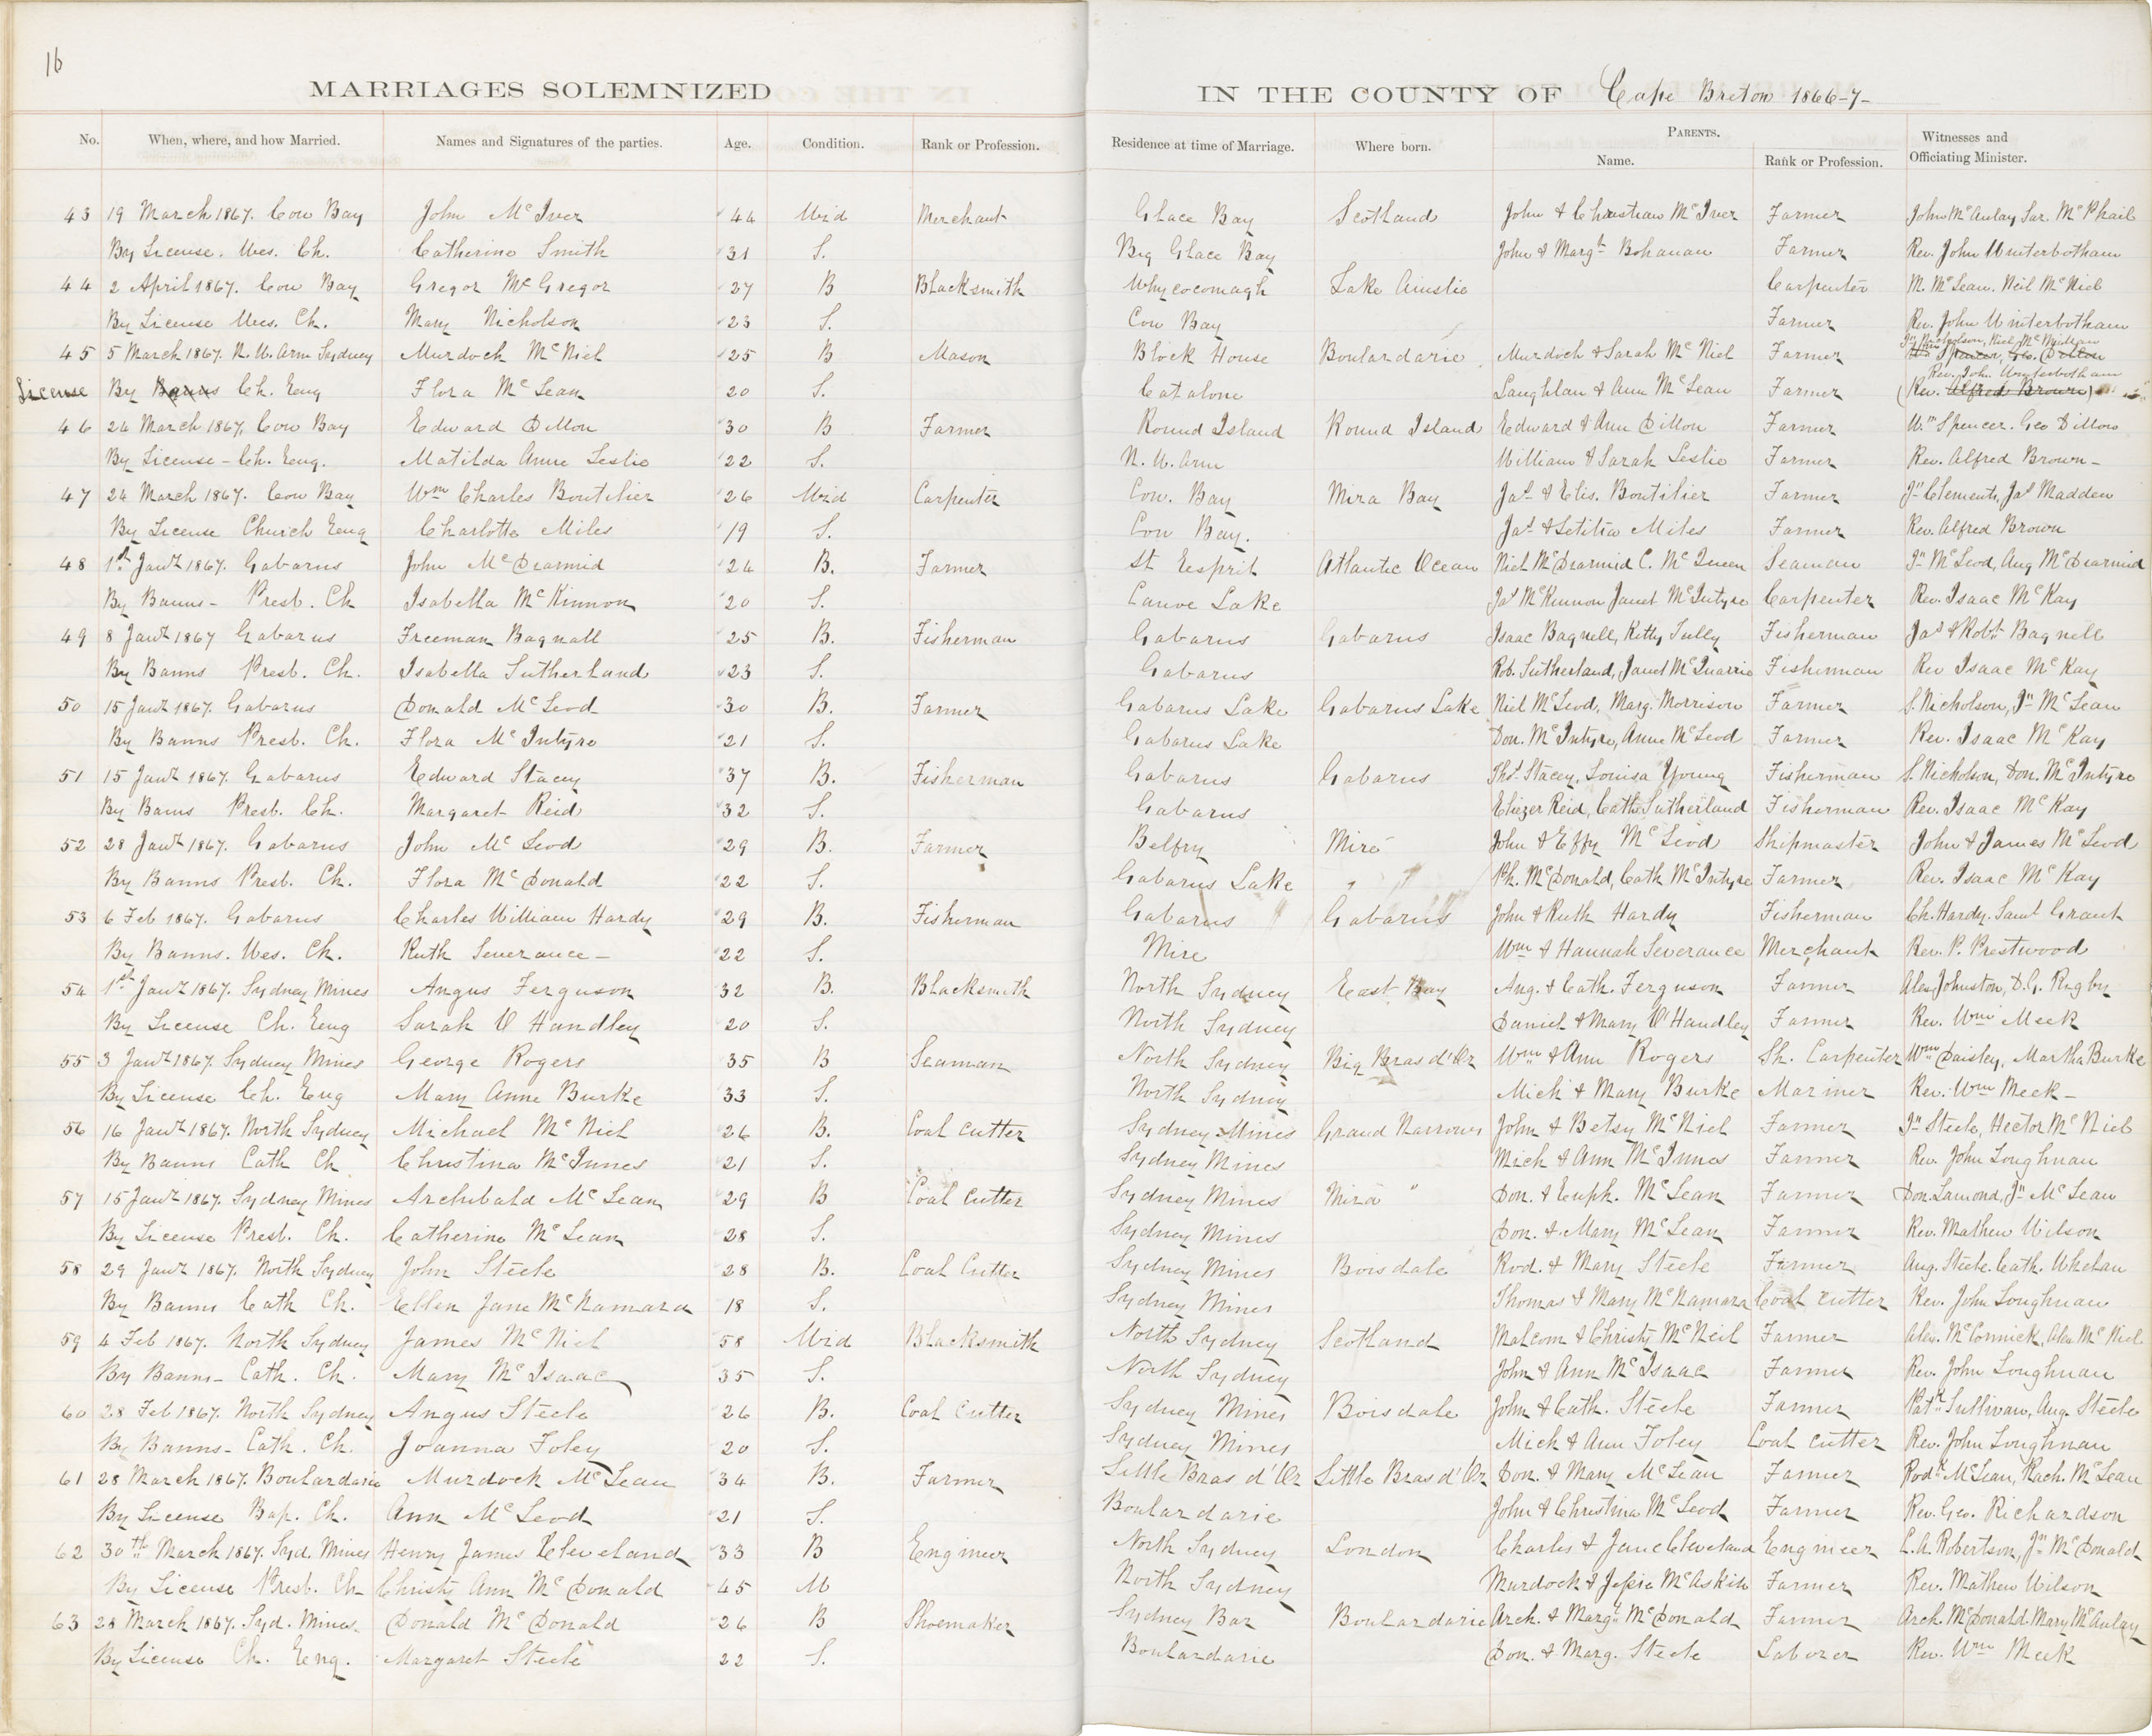 16
MARRIAGES SOLEMNIZED IN THE COUNTY OF Cape Breton 1866-7-
No. When, where, and how Married. Names and Signatures of the parties. Age. Condition. Rank or Profession. Residence at time of Marriage. Where born. PARENTS. Name. Rank or Profession. Witnesses and Officiating Minister.
43 19 March 1867. Cow Bay John McIver 44 Wid Merchant Glace Bay Scotland John & Christian McIver Farmer John McAulay Sar. McPhail
By License. Wes. Ch. Catherine Smith 31 S. Big Glace Bay John & Margt Bohanan Farmer Rev. John Winterbotham
44 2 April 1867. Cow Bay Gregor McGregor 27 B Blacksmith Whycocomagh Lake Ainslie Carpenter M. McLean. Neil McNiel
By License Wes. Ch. Mary Nicholson 23 S. Cow Bay Farmer Rev. John Winterbotham
45 5 March 1867. N. W. Arm Sydney Murdoch McNiel 25 B Mason Block House Boulardarie Murdoch & Sarah McNiel Farmer Jn Nicholson, Niel McMillan Wm Spencer, Geo. Dillon
License By Banns Ch. Eng Flora McLean 20 S. Catalone Laughlan & Ann McLean Farmer Rev. John Winterbotham (Rev. Alfred Brown)
46 24 March 1867, Cow Bay Edward Dillon 30 B Farmer Round Island Round Island Edward & Ann Dillon Farmer Wm Spencer. Geo Dillon
By License - Ch. Eng. Matilda Anne Leslie 22 S. N. W. Arm William & Sarah Leslie Farmer Rev. Alfred Brown -
47 24 March 1867. Cow Bay Wm Charles Boutilier 26 Wid Carpenter Cow. Bay Mira Bay Jas & Elis. Boutilier Farmer Jn Clements, Jas Madden
By License Church Eng Charlotte Miles 19 S. Cow Bay. Jas & Letitia Miles Farmer Rev. Alfred Brown
48 1st Jany 1867. Gabarus John McDiarmid 24 B. Farmer St Esprit Atlantic Ocean Niel McDiarmid C. McQueen Seaman Jn McLeod, Aug McDiarmid
By Banns - Presb. Ch Isabella McKinnon 20 S. Canoe Lake Jas McKinnon Janet McIntyre Carpenter Rev. Isaac McKay
49 8 Jany 1867 Gabarus Freeman Bagnall 25 B. Fisherman Gabarus Gabarus Isaac Bagnell, Kitty Tully Fisherman Jas & Robt Bagnell
By Banns Presb. Ch. Isabella Sutherland 23 S. Gabarus Rob. Sutherland, Janet McQuarrie Fisherman Rev Isaac McKay
50 15 Jany 1867. Gabarus Donald McLeod 30 B. Farmer Gabarus Lake Gabarus Lake Niel McLeod, Marg. Morrison Farmer S. Nicholson, Jn McLean
By Banns Presb. Ch. Flora McIntyre 21 S. Gabarus Lake Don. McIntyre, Anne McLeod Farmer Rev. Isaac McKay
51 15 Jany 1867. Gabarus Edward Stacey 37 B. Fisherman Gabarus Gabarus Thos Stacey, Louisa Young Fisherman S. Nicholson, Don. McIntyre
By Banns Presb. Ch. Margaret Reid 32 S. Gabarus Ebezer Reid, Cath. Sutherland Fisherman Rev. Isaac McKay
52 28 Jany 1867. Gabarus John McLeod 29 B. Farmer Belfry Miré John & Effy McLeod Shipmaster John & James McLeod
By Banns Presb. Ch. Flora McDonald 22 S. Gabarus Lake Ph. McDonald, Cath McIntyre Farmer Rev. Isaac McKay
53 6 Feb 1867. Gabarus Charles William Hardy 29 B. Fisherman Gabarus Gabarus John & Ruth Hardy Fisherman Ch. Hardy. Saml Grant
By Banns. Wes. Ch. Ruth Severance - 22 S. Mire Wm & Hannah Severance Merchant Rev. P. Prestwood
54 1st Jany 1867. Sydney Mines Angus Ferguson 32 B. Blacksmith North Sydney East Bay Aug. & Cath. Ferguson Farmer Alex Johnston, D. G. Rigby
By License Ch. Eng Sarah O Handley 20 S. North Sydney Daniel & Mary O'Handley Farmer Rev. Wm Meek
55 3 Jany 1867. Sydney Mines George Rogers 35 B Seaman North Sydney Big Bras d'Or Wm & Ann Rogers Sh. Carpenter Wm Daisley, Martha Burke
By License Ch. Eng Mary Anne Burke 33 S. North Sydney Mich & Mary Burke Mariner Rev. Wm Meek -
56 16 Jany 1867. North Sydney Michael McNiel 26 B. Coal Cutter Sydney Mines Grand Narrows John & Betsy McNiel Farmer Jn Steele, Hector McNiel
By Banns Cath Ch Christina McInnes 21 S. Sydney Mines Mich & Ann McInnes Farmer Rev. John Loughnan
57 15 Jany 1867. Sydney Mines Archibald McLean 29 B Coal Cutter Sydney Mines Mira " Don. & Euph. McLean Farmer Don. Lamond, Jn McLean
By License Presb. Ch. Catherine McLean 28 S. Sydney Mines Don. & Mary McLean Farmer Rev. Mathew Wilson
58 29 Jany 1867. North Sydney John Steele 28 B. Coal Cutter Sydney Mines Boisdale Rod. & Mary Steele Farmer Aug. Steele. Cath. Whelan
By Banns Cath Ch. Ellen Jane McNamara 18 S. Sydney Mines Thomas & Mary McNamara Coal Cutter Rev. John Loughnan
59 4 Feb 1867. North Sydney James McNiel 58 Wid Blacksmith North Sydney Scotland Malcom & Christy McNeil Farmer Alex. McCormick, Alex McNiel
By Banns - Cath. Ch. Mary McIsaac 35 S. North Sydney John & Ann McIsaac Farmer Rev. John Loughnan
60 28 Feb 1867. North Sydney Angus Steele 26 B. Coal Cutter Sydney Mines Boisdale John & Cath. Steele Farmer Patk Sullivan, Aug. Steele
By Banns - Cath. Ch. Joanna Foley 20 S. Sydney Mines Mich & Ann Foley Coal Cutter Rev. John Loughnan
61 28 March 1867. Boulardarie Murdock McLean 34 B. Farmer Little Bras d'Or Little Bras d'Or Don. & Mary McLean Farmer Rodk McLean, Rach. McLean
By License Bap. Ch. Ann McLeod 21 S. Boulardarie John & Christina McLeod Farmer Rev. Geo. Richardson
62 30th March 1867. Syd. Mines Henry James Cleveland 33 B Engineer North Sydney London Charles & Jane Cleveland Engineer C. A. Robertson, Jn McDonald
By License Presb. Ch Christy Ann McDonald 45 W North Sydney Murdock & Jessie McAskill Farmer Rev. Mathew Wilson
63 28 March 1867. Syd. Mines. Donald McDonald 26 B Shoemaker Sydney Bar Boulardarie Arch. & Margt McDonald Farmer Arch. McDonald. Mary McAulay
By License Ch. Eng. Margaret Steele 22 S. Boulardarie Don. & Marg. Steele Laborer Rev. Wm Meek